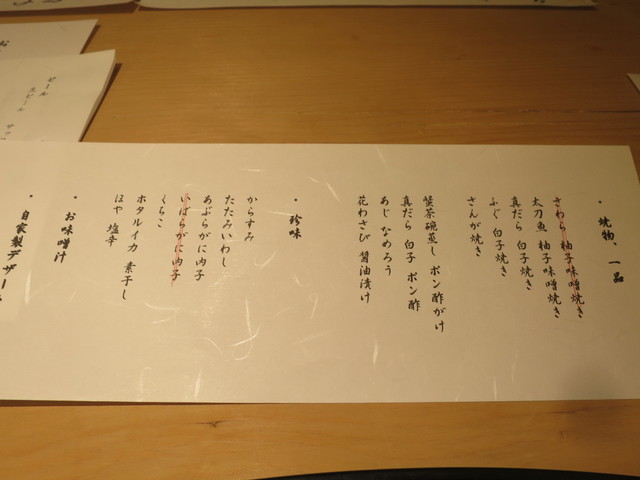 ・焼物、一品
さわら 柚子味噌焼き
太刀魚 柚子味噌焼き
真だら 白子焼き
ふぐ 白子焼き
さんが焼き
蟹茶碗蒸し ポン酢がけ
真だら 白子 ポン酢
あじ なめろう
花わさび 醤油漬け
・珍味
からすみ
たたみいわし
あぶらがに内子
いばらがに内子
くちこ
ホタルイカ 素干し
ほや 塩辛
・お味噌汁
・自家製デザート
・ビール
生ビール